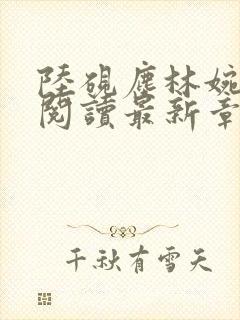 陸硯塵林婉
閱讀最新章
千秋有雪天